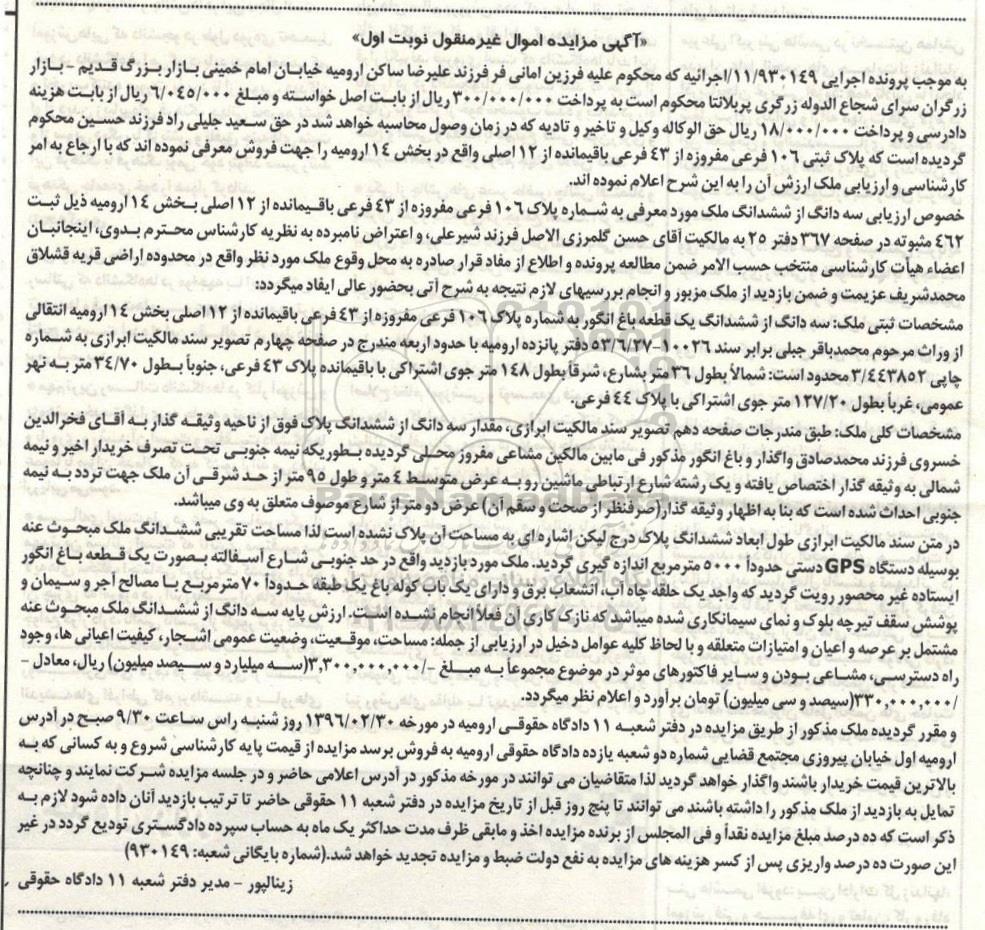 «آگهی مزایده اموال غیرمنقول نوبت اول»
به موجب پرونده اجرایی ۱۱/۹۳۰۱۴۹/اجرائیه که محکوم علیه فرزین امانی فر فرزند علیرضا ساکن ارومیه خیابان امام خمینی بازار بزرگ قدیم - بازار
زرگران سرای شجاع الدوله زرگری پربلانتا محکوم است به پرداخت ۳۰۰/۰۰۰/۰۰۰ ریال از بابت اصل خواسته و مبلغ ۶/۰۴۵/۰۰۰ ریال از بابت هزینه
دادرسی و پرداخت ۱۸/۰۰۰/۰۰۰ ریال حق الوکاله وکیل و تاخیر و تادیه که در زمان وصول محاسبه خواهد شد در حق سعید جلیلی راد فرزند حسین محکوم
گردیده است که پلاک ثبتی ۱۰۶ فرعی مفروزه از ۴۳ فرعی باقیمانده از ۱۲ اصلی واقع در بخش ۱۴ ارومیه را جهت فروش معرفی نموده اند که با ارجاع به امر
کارشناسی و ارزیابی ملک ارزش آن را به این شرح اعلام نموده اند.
خصوص ارزیابی سه دانگ از ششدانگ ملک مورد معرفی به شماره پلاک ۱۰۶ فرعی مفروزه از ۴۳ فرعی باقیمانده از ۱۲ اصلی بخش ۱۴ ارومیه ذیل ثبت
۴۶۲ مثبوته در صفحه ۳۶۷ دفتر ۲۵ به مالکیت آقای حسن گلمرزی الاصل فرزند شیرعلی، و اعتراض نامبرده به نظریه کارشناس محترم بدوی، اینجانبان
اعضاء هیأت کارشناسی منتخب حسب الامر ضمن مطالعه پرونده و اطلاع از مفاد قرار صادره به محل وقوع ملک مورد نظر واقع در محدوده اراضی قریه قشلاق
محمدشریف عزیمت و ضمن بازدید از ملک مزبور و انجام بررسیهای لازم نتیجه به شرح آتی بحضور عالی ایفاد میگردد:
مشخصات ثبتی ملک: سه دانگ از ششدانگ یک قطعه باغ انگور به شماره پلاک ۱۰۶ فرعی مفروزه از ۴۳ فرعی باقیمانده از ۱۲ اصلی بخش ۱۴ ارومیه انتقالی
از وراث مرحوم محمدباقر جبلی برابر سند ۱۰۰۲۶-۵۳/۶/۲۷ دفتر پانزده ارومیه با حدود اربعه مندرج در صفحه چهارم تصویر سند مالکیت ابرازی به شماره
چاپی ۳/۴۴۳۸۵۲ محدود است: شمالاً بطول ۳۶ متر بشارع، شرقاً بطول ۱۴۸ متر جوی اشتراکی با باقیمانده پلاک ۴۳ فرعی، جنوباً بطول ۳۴/۷۰ متر به نهر
عمومی، غرباً بطول ۱۲۷/۲۰ متر جوی اشتراکی با پلاک ۴۴ فرعی.
مشخصات کلی ملک: طبق مندرجات صفحه دهم تصویر سند مالکیت ابرازی، مقدار سه دانگ از ششدانگ پلاک فوق از ناحیه وثیقه گذار به آقای فخرالدین
خسروی فرزند محمدصادق واگذار و باغ انگور مذکور فی مابین مالکین مشاعی مفروز محلی گردیده بطوریکه نیمه جنوبی تحت تصرف خریدار اخیر و نیمه
شمالی به وثیقه گذار اختصاص یافته و یک رشته شارع ارتباطی ماشین رو به عرض متوسط ۴ متر و طول ۹۵ متر از حد شرقی آن ملک جهت تردد به نیمه
جنوبی احداث شده است که بنا به اظهار وثیقه گذار(صرفنظر از صحت و سقم آن) عرض دو متر از شارع موصوف متعلق به وی میباشد.
در متن سند مالکیت ابرازی طول ابعاد ششدانگ پلاک درج لیکن اشاره ای به مساحت آن پلاک نشده است لذا مساحت تقریبی ششدانگ ملک مبحوث عنه
بوسیله دستگاه GPS دستی حدوداً ۵۰۰۰ مترمربع اندازه گیری گردید. ملک مورد بازدید واقع در حد جنوبی شارع آسفالته بصورت یک قطعه باغ انگور
ایستاده غیر محصور رویت گردید که واجد یک حلقه چاه آب، انشعاب برق و دارای یک باب کوله باغ یک طبقه حدوداً ۷۰ مترمربع با مصالح آجر و سیمان و
پوشش سقف تیرچه بلوک و نمای سیمانکاری شده میباشد که نازک کاری آن فعلاً انجام نشده است. ارزش پایه سه دانگ از ششدانگ ملک مبحوث عنه
مشتمل بر عرصه و اعیان و امتیازات متعلقه و با لحاظ کلیه عوامل دخیل در ارزیابی از جمله: مساحت، موقعیت، وضعیت عمومی اشجار، کیفیت اعیانی ها، وجود
راه دسترسی، مشاعی بودن و سایر فاکتورهای موثر در موضوع مجموعاً به مبلغ -/۳,۳۰۰,۰۰۰,۰۰۰(سه میلیارد و سیصد میلیون) ریال، معادل -
/۳۳۰,۰۰۰,۰۰۰(سیصد و سی میلیون) تومان برآورد و اعلام نظر میگردد.
و مقرر گردیده ملک مذکور از طریق مزایده در دفتر شعبه ۱۱ دادگاه حقوقی ارومیه در مورخه ۱۳۹۶/۰۲/۳۰ روز شنبه راس ساعت ۹/۳۰ صبح در آدرس
ارومیه اول خیابان پیروزی مجتمع قضایی شماره دو شعبه یازده دادگاه حقوقی ارومیه به فروش برسد مزایده از قیمت پایه کارشناسی شروع و به کسانی که به
بالاترین قیمت خریدار باشند واگذار خواهد گردید لذا متقاضیان می توانند در مورخه مذکور در آدرس اعلامی حاضر و در جلسه مزایده شرکت نمایند و چنانچه
تمایل به بازدید از ملک مذکور را داشته باشند می توانند تا پنج روز قبل از تاریخ مزایده در دفتر شعبه ۱۱ حقوقی حاضر تا ترتیب بازدید آنان داده شود لازم به
ذکر است که ده درصد مبلغ مزایده نقداً و فی المجلس از برنده مزایده اخذ و مابقی ظرف مدت حداکثر یک ماه به حساب سپرده دادگستری تودیع گردد در غیر
این صورت ده درصد واریزی پس از کسر هزینه های مزایده به نفع دولت ضبط و مزایده تجدید خواهد شد.(شماره بایگانی شعبه: ۹۳۰۱۴۹)
زینالپور - مدیر دفتر شعبه ۱۱ دادگاه حقوقی